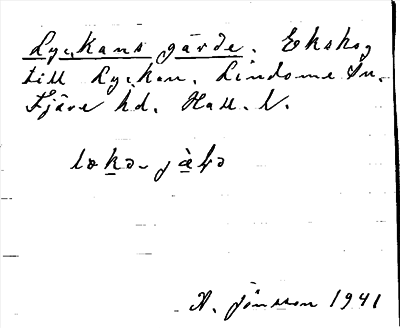 Lyckans gärde. Ekskog
till Lyckan. Lindome Sn.
Fjäre hd. Hall. N.
A. Jönsson 1941